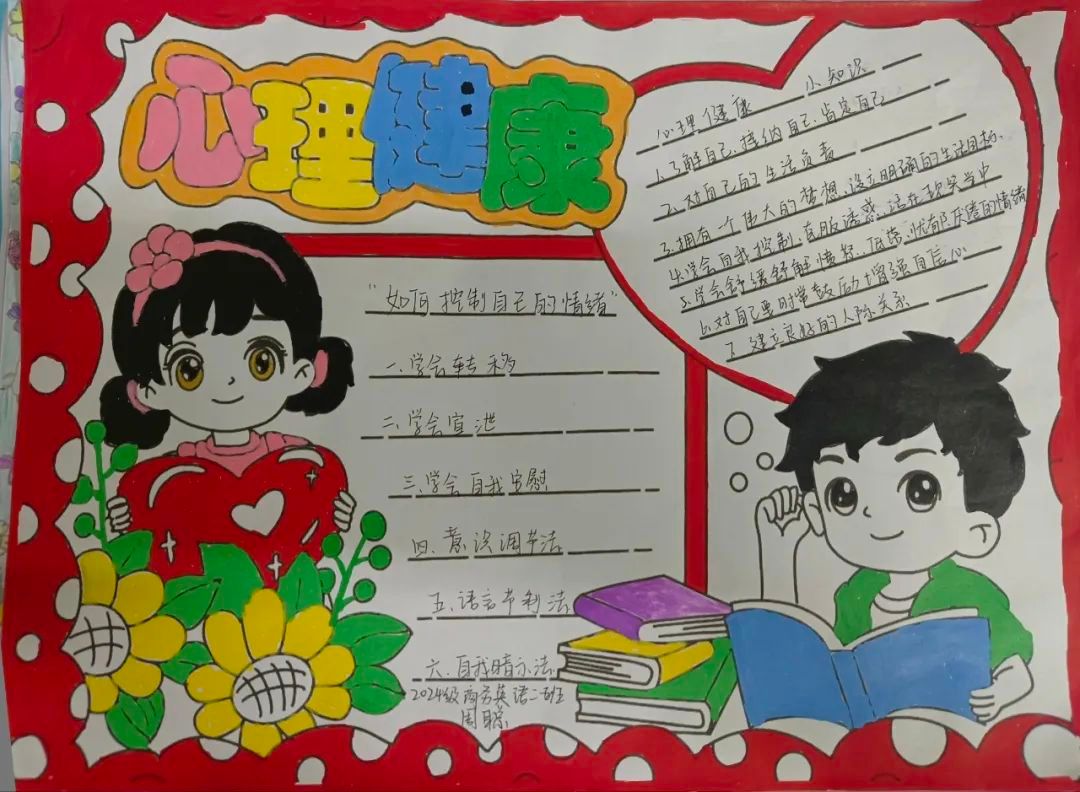 心理健康
心理健康 小知识
1.了解自己、接纳自己、肯定自己
2.对自己的生活负责
3.拥有一个伟大的梦想、设立明确的生活目标.
4.学会自我控制、克服诱惑、活在现实当中
5.学会舒缓舒解愤怒、低落、忧郁、厌倦的情绪
6.对自己要时常鼓励增强自信心
7.建立良好的人际关系
“如何控制自己的情绪”
一.学会转移
二.学会宣泄
三.学会自我安慰
四.意识调节法
五.语言节制法
六.自我暗示法
2024级商务英语二班
周聪